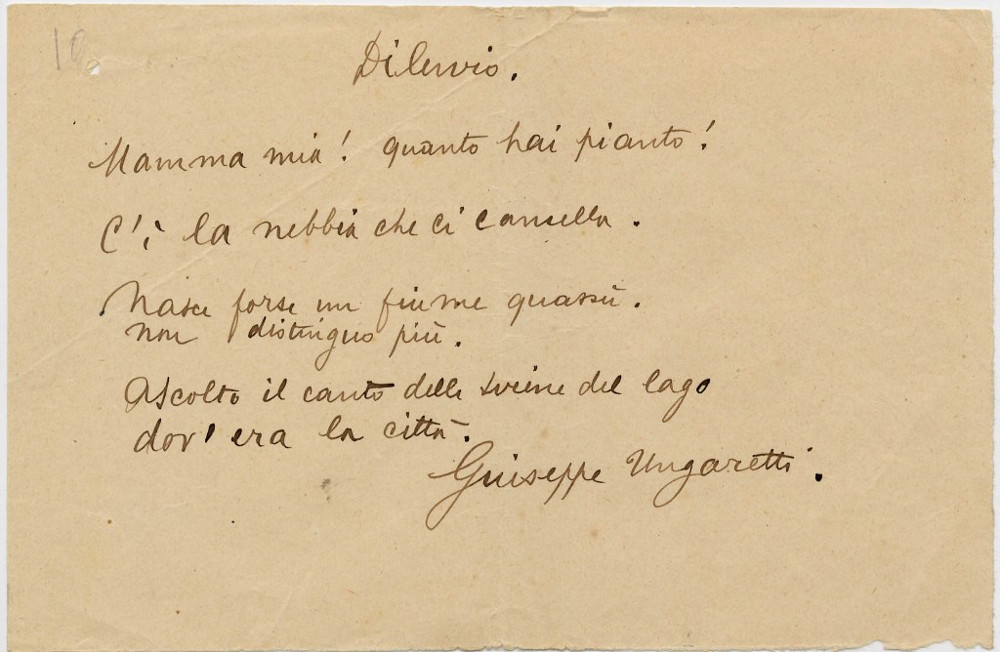 Diluvio.
Mamma mia! quanto hai pianto!
C'è la nebbia che ci cancella.
Nasce forse un fiume quassù.
non distinguo più.
Ascolto il canto delle sirene del lago
dov'era la città.
Giuseppe Ungaretti.